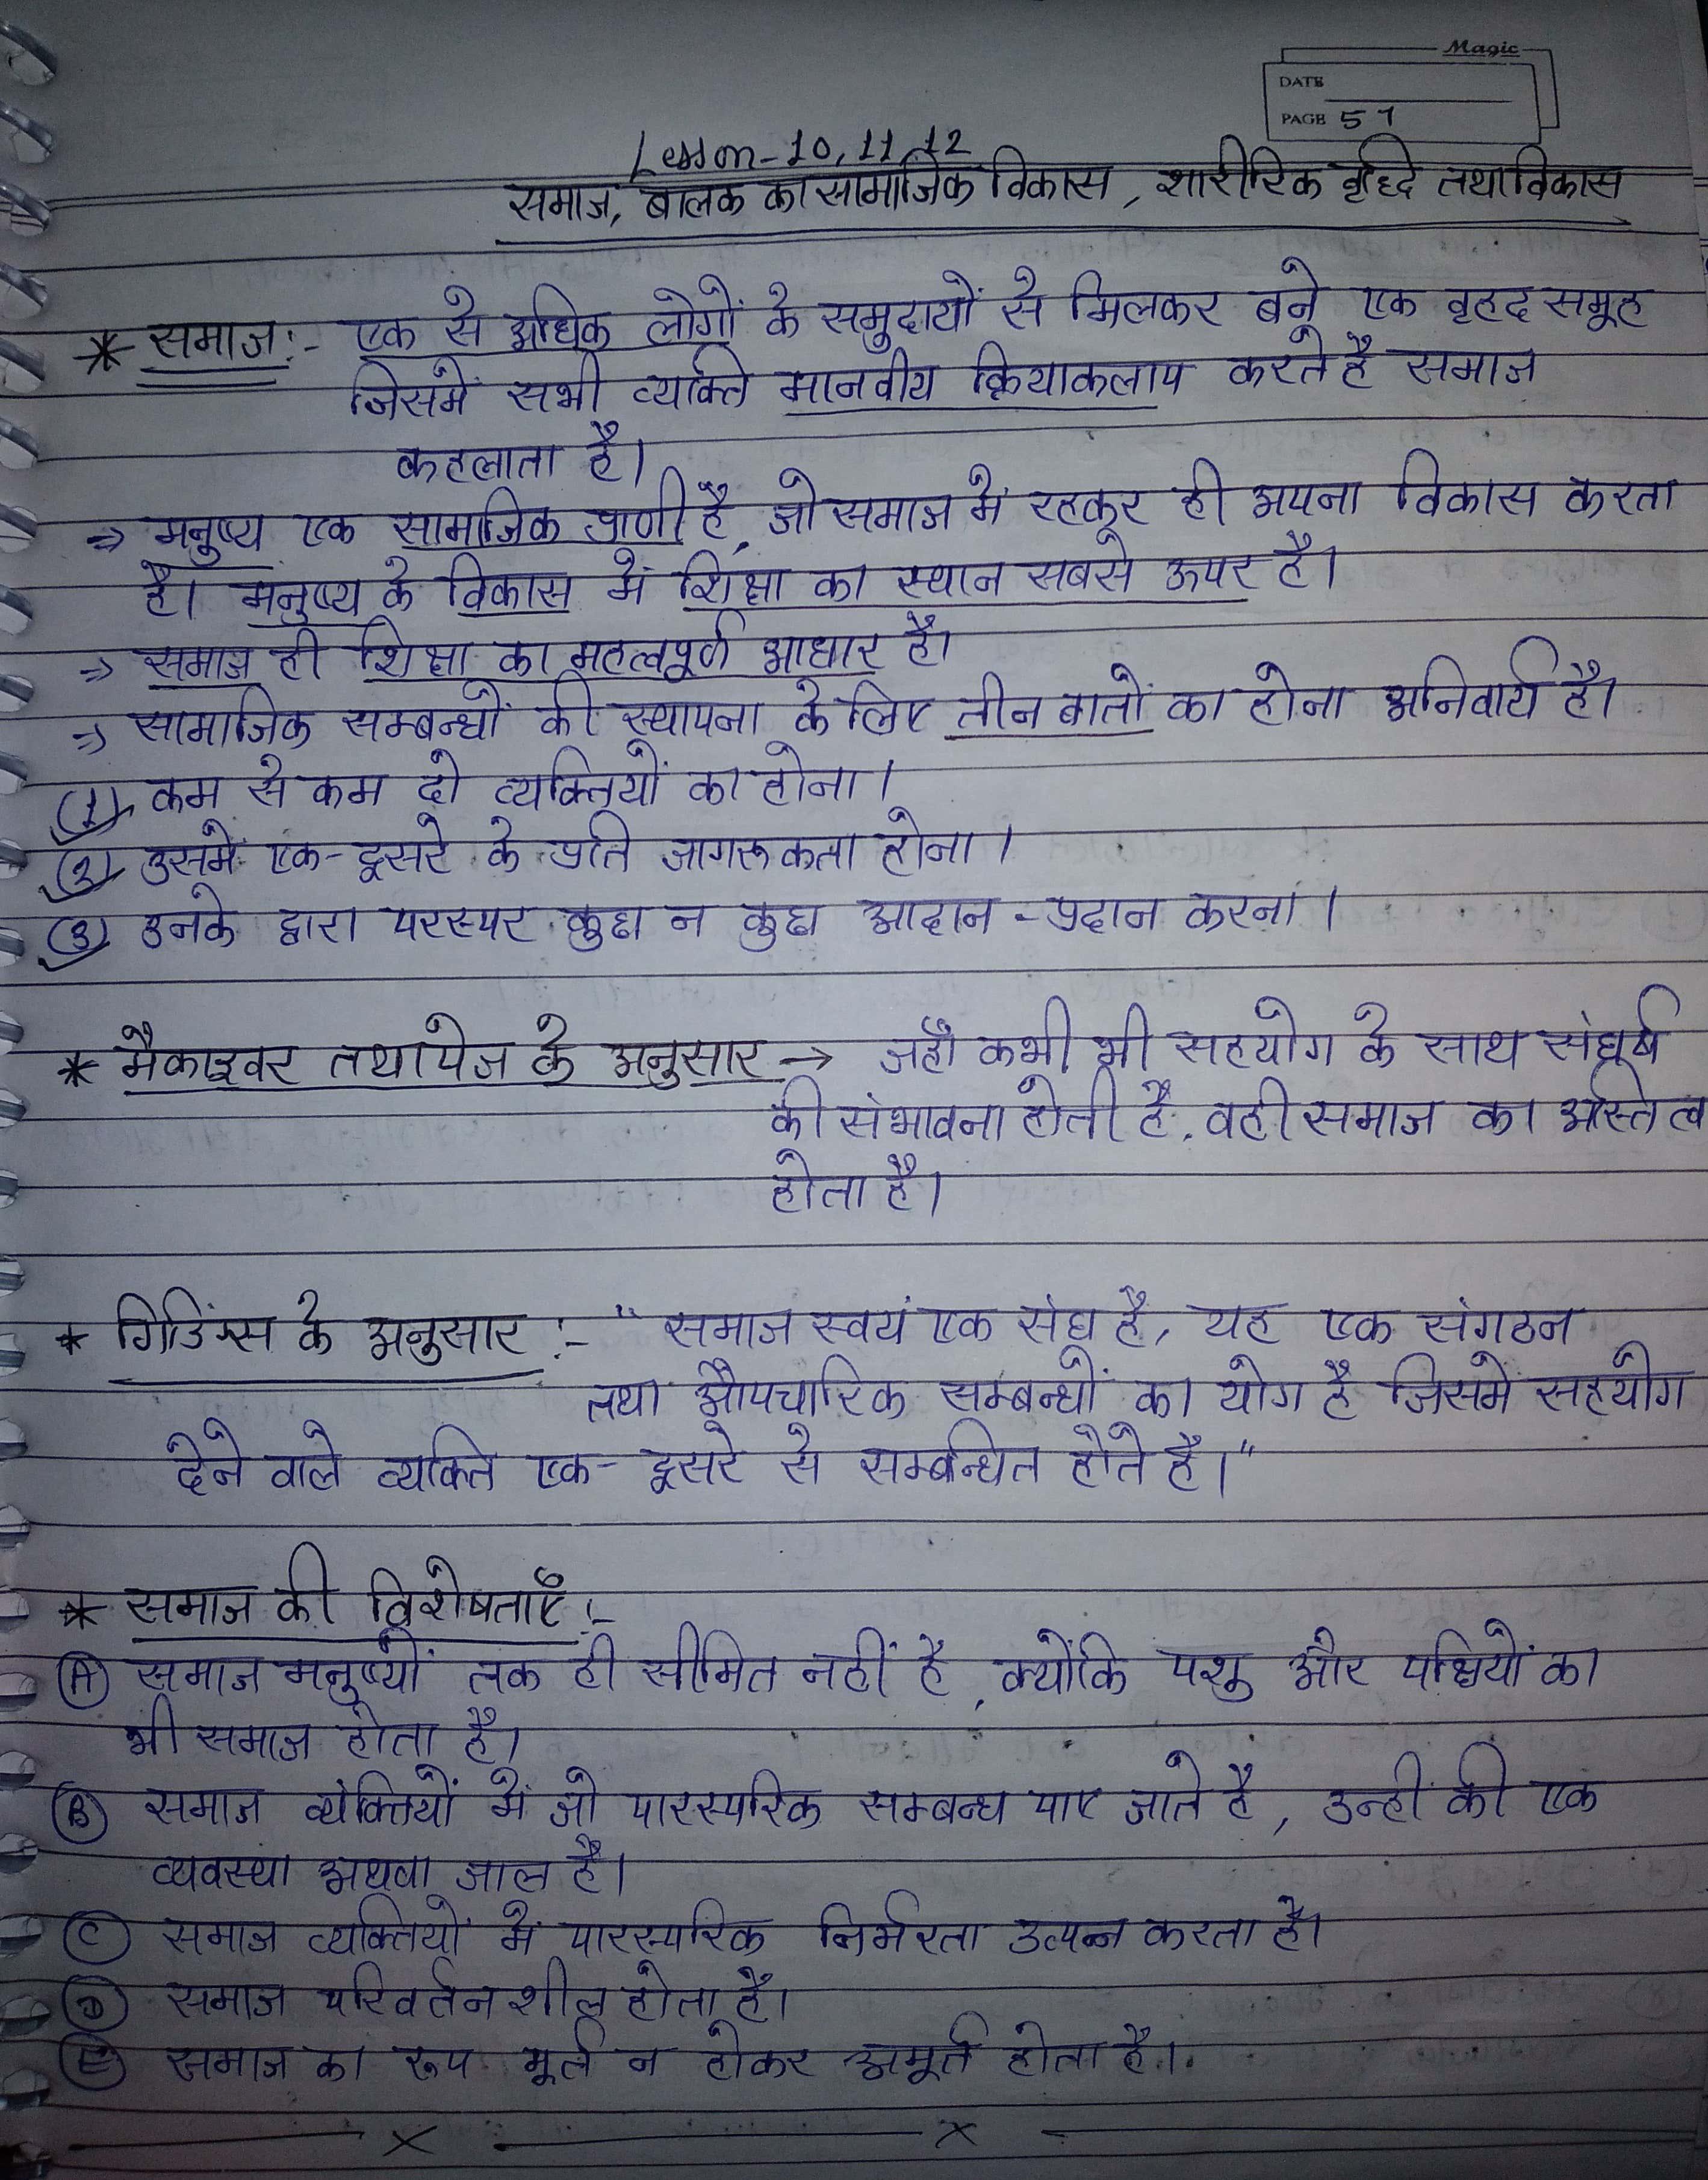 Magic
DATE
PAGE 51
Lesson-10,11,12
समाज, बालक का सामाजिक विकास, शारीरिक वृद्धि तथा विकास
* समाज:- एक से अधिक लोगों के समुदायों से मिलकर बने एक वृहद समूह
जिसमें सभी व्यक्ति मानवीय क्रियाकलाप करते है समाज
कहलाता है।
⇒ मनुष्य एक सामाजिक प्राणी है, जो समाज में रहकर ही अपना विकास करता
है। मनुष्य के विकास में शिक्षा का स्थान सबसे ऊपर है।
⇒ समाज ही शिक्षा का महत्वपूर्ण आधार है।
⇒ सामाजिक सम्बन्धों की स्थापना के लिए तीन बातों का होना अनिवार्य है।
(1) कम से कम दो व्यक्तियों का होना।
(2) उसमें एक-दूसरे के प्रति जागरूकता होना।
(3) उनके द्वारा परस्पर कुछ न कुछ आदान-प्रदान करना।
* मैकाइवर तथा पेज के अनुसार → जहाँ कभी भी सहयोग के साथ संघर्ष
की संभावना होती है, वही समाज का अस्तित्व
होता है।
* गिडिंग्स के अनुसार:- "समाज स्वयं एक संघ है, यह एक संगठन
तथा औपचारिक सम्बन्धों का योग है जिसमें सहयोग
देने वाले व्यक्ति एक-दूसरे से सम्बन्धित होते है।"
* समाज की विशेषताएँ:-
(A) समाज मनुष्यों तक ही सीमित नहीं है, क्योंकि पशु और पक्षियों का
भी समाज होता है।
(B) समाज व्यक्तियों में जो पारस्परिक सम्बन्ध पाए जाते है, उन्हीं की एक
व्यवस्था अथवा जाल है।
(C) समाज व्यक्तियों में पारस्परिक निर्भरता उत्पन्न करता है।
(D) समाज परिवर्तनशील होता है।
(E) समाज का रूप मूर्त न होकर अमूर्त होता है।